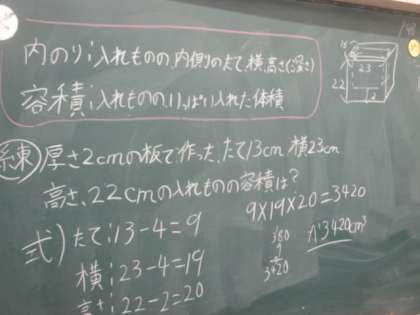 内のり;入れものの、内側のたて、横、高さ(深さ)
容積;入れものの、いっぱい入れた体積
練 厚さ2cmの板で作った、たて13cm 横23cm
高さ、22cmの入れものの容積は?
式) たて;13-4=9
横;23-4=19
高さ;22-2=20
9×19×20=3420
180
3420
A 3420cm³
23
22